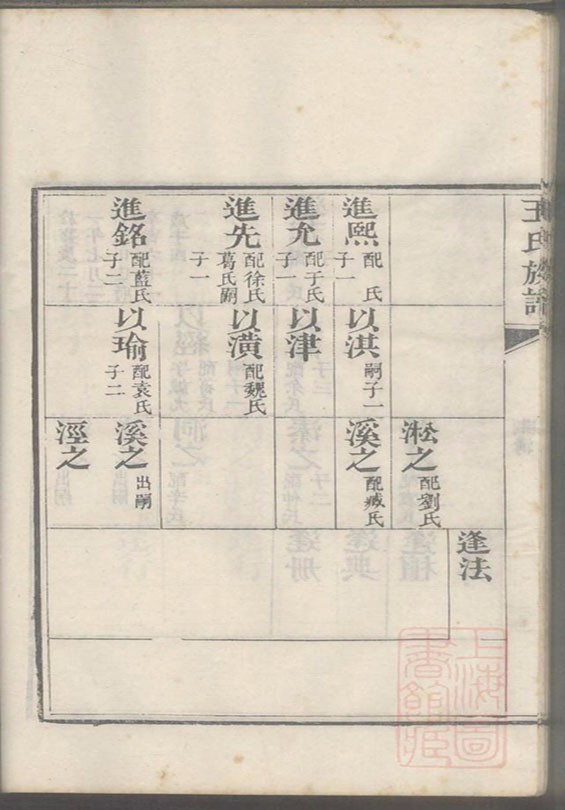 王氏族譜
逢法
淞之 配劉氏
進熙 配 氏 子一
以淇 嗣子一
溪之 配臧氏
進允 配于氏 子一
以津
進先 配徐氏 葛氏嗣 子一
以潢 配魏氏
進銘 配藍氏 子二
以瑜 配袁氏 子二
溪之 出嗣
涇之
上海圖書館藏